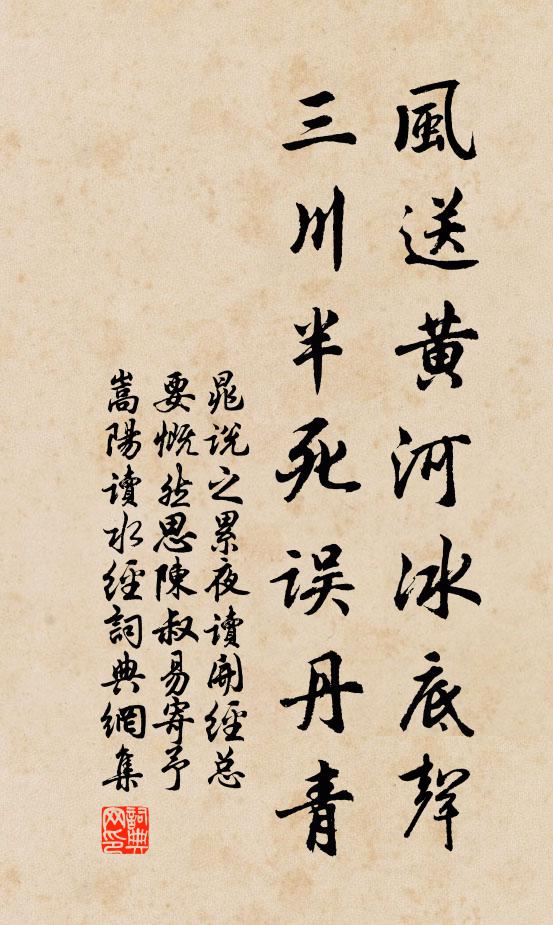 風送黄河冰底聲
三川半死误丹青
晁说之累夜读開經总
要慨然思陳叔易寄予
嵩陽读水經詞典網集
詞典
网印